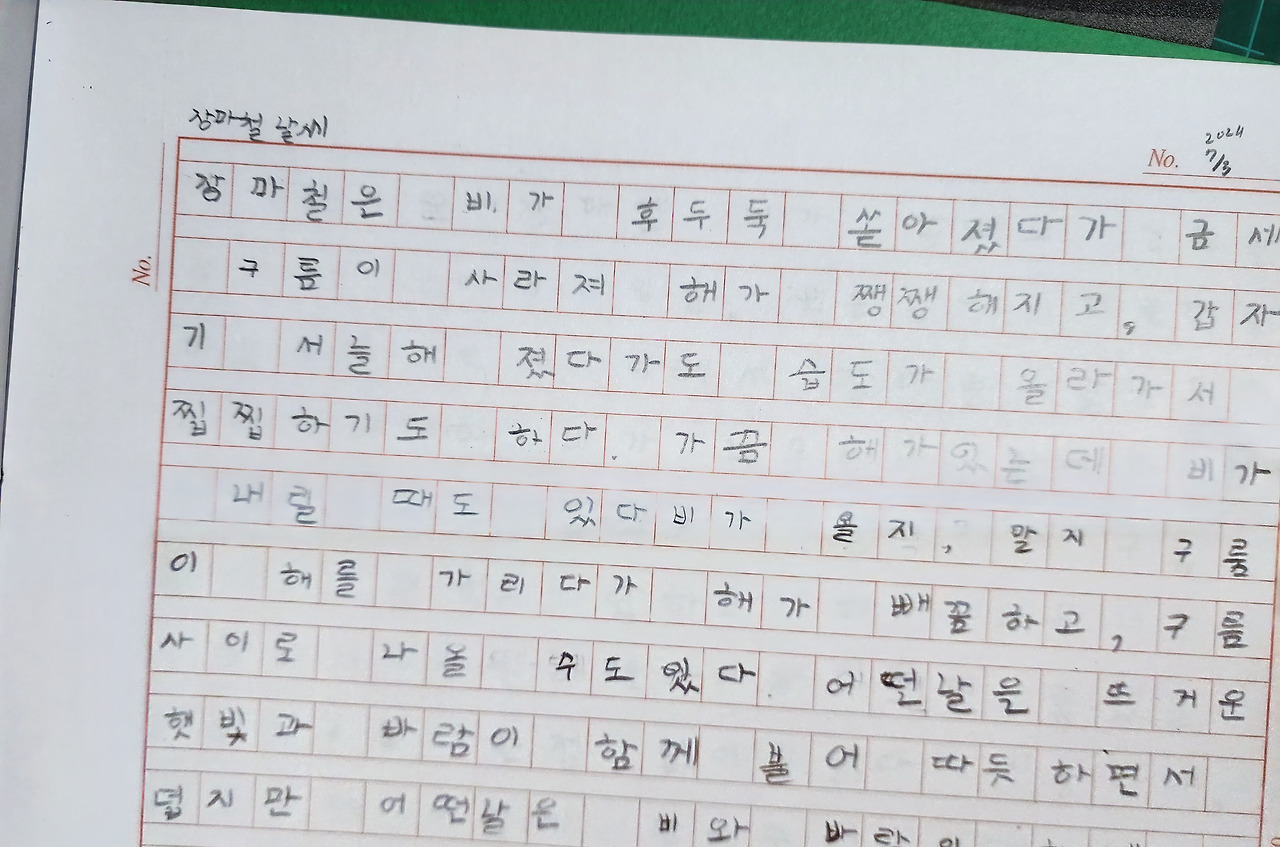 장마철 날씨
No. 2024 7/3
No.
장마철은 비가 후두둑 쏟아졌다가 금세
구름이 사라져 해가 쨍쨍해지고, 갑자
기 서늘해 졌다가도 습도가 올라가서
찝찝하기도 하다. 가끔 해가있는데 비가
내릴 때도 있다비가 올지, 말지 구름
이 해를 가리다가 해가 빼꼼하고, 구름
사이로 나올 수도있다. 어떤날은 뜨거운
햇빛과 바람이 함께 불어 따듯하면서
덥지만 어떤날은 비와